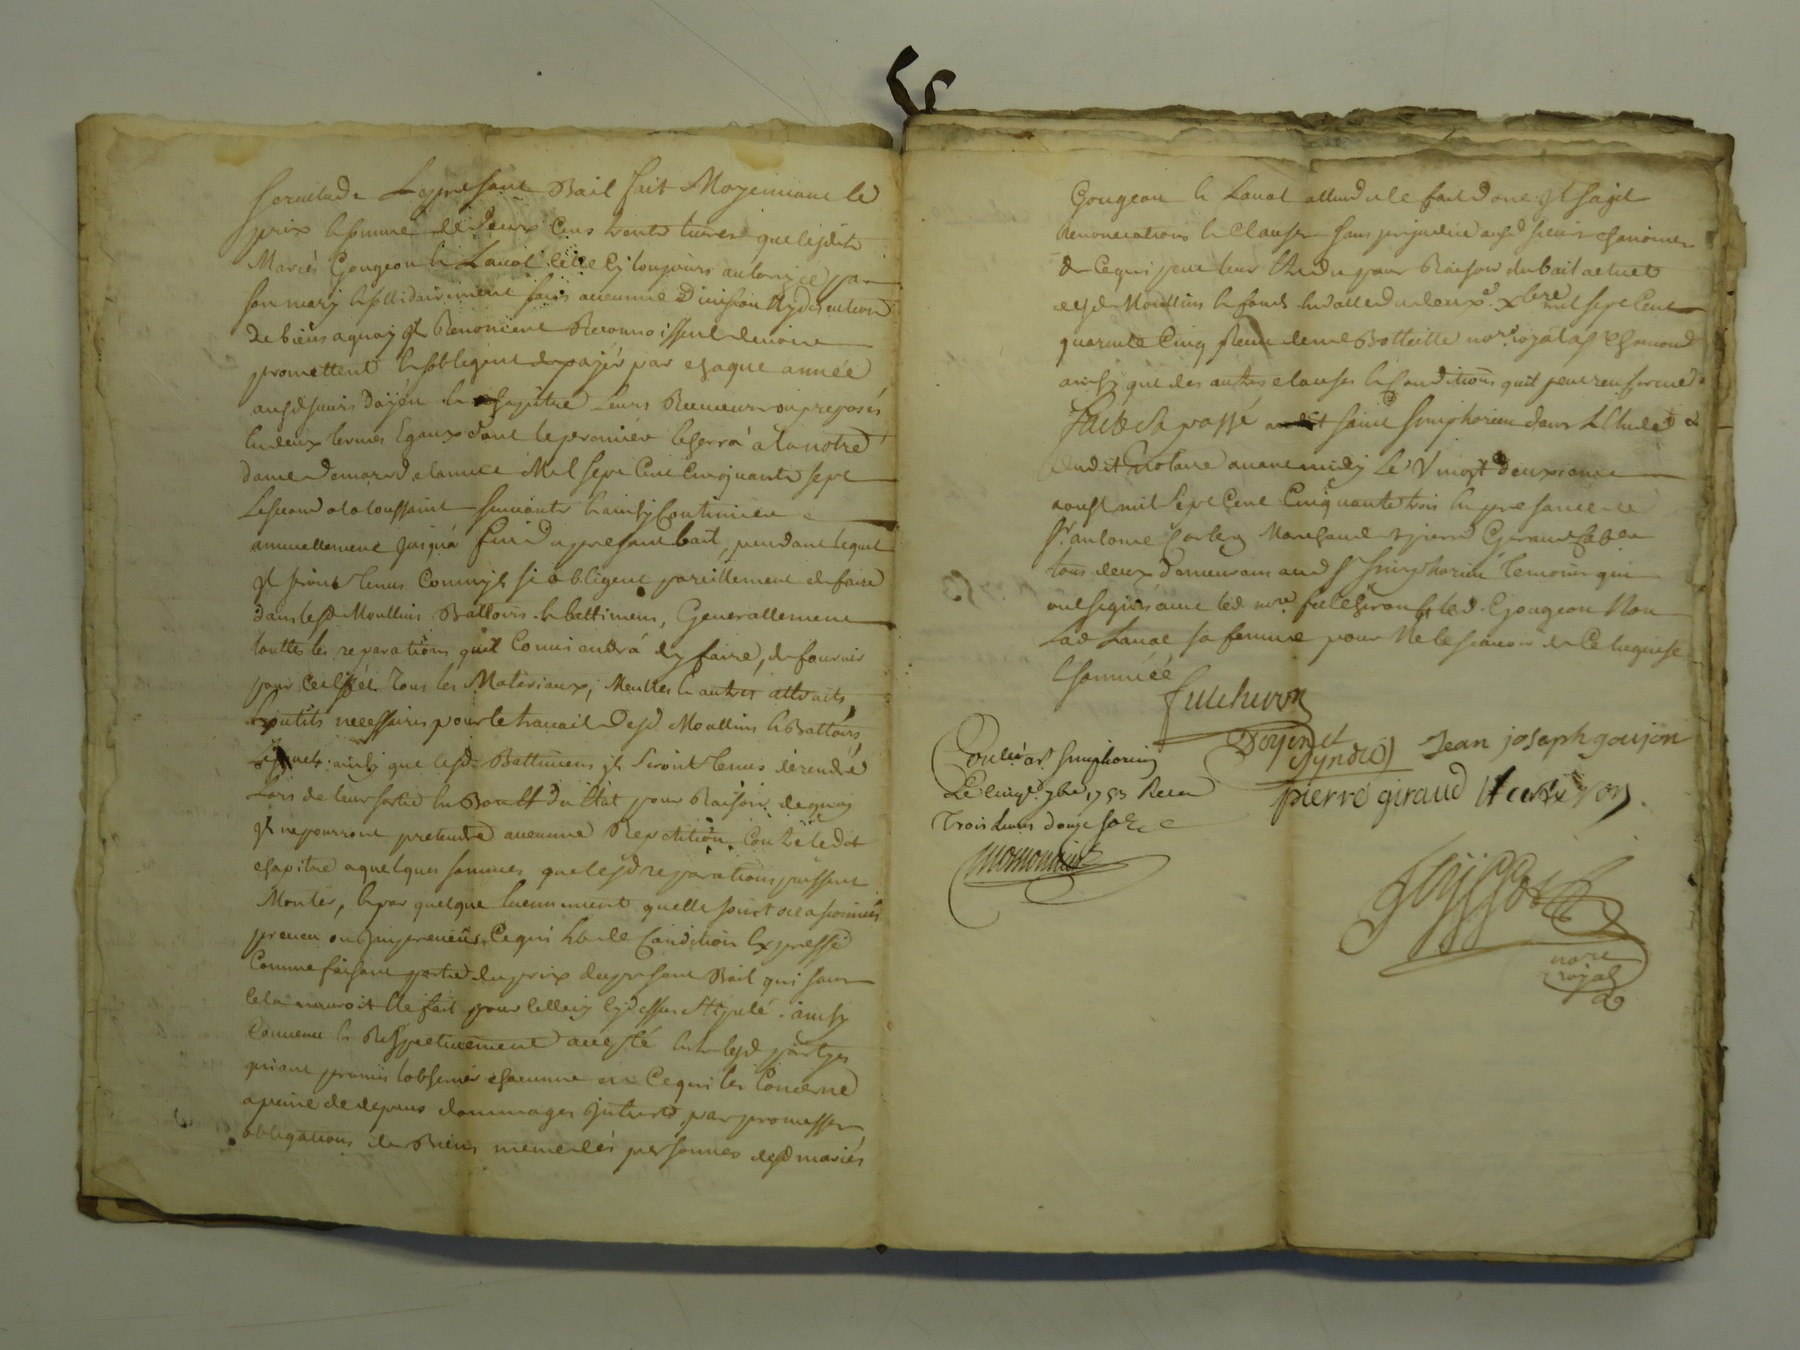 servitude Le present Bail fait Moyennant le
prix & somme de deux Cens trente livres que lesdits
Mariés Gougeon & Laval celle cy toujours autorizée par
son mary & sollidairement sans aucunne Division Ny discution
de biens aquoy jls Renoncent Reconnoissent devoir
promettent & sobligent de payer par chaque année
auxd sieurs Doyen & chapitre Leurs Receveurs ou preposés
en deux termes Egaux dont le premier Eserra a la notre
dame de mars de lannée Mil sept Cent Cinquante sept
Le second a la toussaint suivante & ainsy Continuer
annuellement jusqu'a fin du present bail, pendant lequel
jls seront tenus Commjls si obligent pareillement de faire
dans lesd Moullins Battoirs & battimens, Generallement
touttes les reparations quil Conviendra dy faire, de fournir
pour Cet effet Tous les Materiaux, Meulles & autres attraits
& outils necessaires pour le travail Desd Moullins & Battoirs
Lesquels ainsy que lesd Battimens jls seront tenus de rendre
Lors de leur sortie En Bon Et Du Etat pour Raison de quoy
jls ne pourront pretendre aucunne Repetition Contre le dit
chapitre a quelques sommes que lesd reparations puissent
Monter, & par quelque Evennement quelle soint occasionnées
preveu ou jmpreveüs, Ce qui Est de Condition Expresse
Comme faisant partie du prix du present Bail qui sans
Cela nauroit Ete fait pour Celluy Cy dessus Stipulé. ainsy
Convenu & Respectivement accepté Entre lesd partyes
qui ont promis lobserver chacunne en Ce qui les Concerne
a peine de depens dommages jnterets, par promesses
obligations de Biens meme des personnes desd mariés
Gougeon & Laval attendu le fait dont jl sagit
Renonciations & Clauses sans prejudice auxd sieurs chanoines
de Ce qui peut leur Etre du pour Raison du bail actuel
desd Moullins & fonds En datte du deux xbre mil sept Cent
quarente Cinq Receu de me Botteille nore royal a st Chamond
ainsy que des autres clauses & Conditions quil peut renfermer
Fait & passé audit saint simphorien dans L'Etude
dudit Notaire avant midy Le Vingt deuxieme
aoust mil sept Cent Cinquante trois En presance de
sr antoine Marchand & pierre Giraud
tous deux demeurants aud st simphorien temoins qui
ont signés avec led. sieur fulchiron & led. Gougeon Non
Lad. Laval sa femme pour Ne le scavoir de Ce Enquise
& sommée
fulchiron
Doyen et
syndic
Jean joseph goujon
pierre giraud
Controllé a st simphorien
Le Cinq 7bre 1753 Receu
Trois livres douze sols
nore
royal